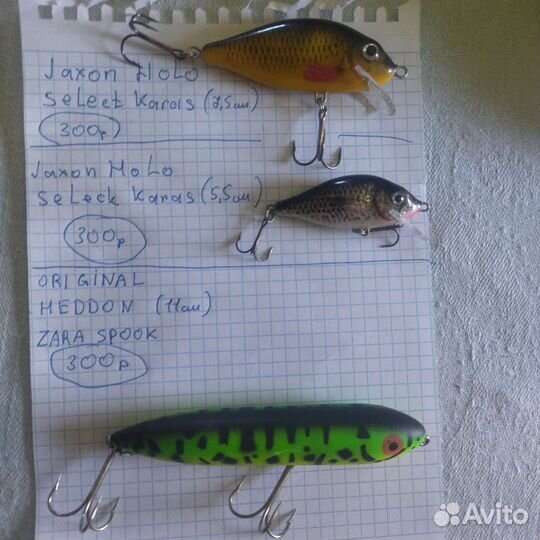 Jaxon HoLo
SeLect Karas (7,5см)
300р
Jaxon HoLo
SeLeck Karas (5,5см)
300р
ORIGINAL
HEDDON (11см)
ZARA SPOOK
300р
Avito